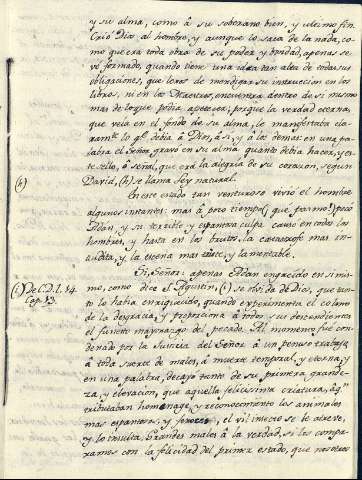 y su alma, como â su soberano bien, y ultimo fin
Crio Dios al hombre, y aunque lo saca de la nada, co-
mo que era toda obra de su poder y bondad, apenas se
vé formado, quando tiene una alma tan alta de todas sus
obligaciones, que lexos de mendigar su instruccion en los
libros, ni en los Maestros, encuentra dentro de si mismo
mas de lo que podia apetecer, porque la verdad eterna,
que veia en el fondo de su alma, le manifestaba cla-
ramte lo qe debia â Dios, â si, y â los demas: en una pa-
labra el Señor gravó en su alma quanto debia hacer, y es-
te sello, ô señal, que era la alegria de su corazon, segun
(h) David, (h) se llama Ley natural.
En este estado tan venturoso vivió el hombre
algunos instantes: mas â poco tiempo ¡que pasmo! pecó
Adan, y su terrible y espantosa culpa causó en todos los
hombres, y hasta en los brutos, la catastrofe mas in-
audita, y la escena mas triste, y lamentable.
Si, Señor: apenas Adan engreido en si mis-
(i) De C. D. L. 14. Cap. 13.
mo, como dice S. Agustin, (i) se olvida de Dios, que tan-
to lo habia enriquecido, quando experimenta el colmo
de la desgracia, y proporciona â todos sus descendientes
el funesto mayorazgo del pecado. Al momento fué con-
denado por la Justicia del Señor â un penoso trabajo,
â toda suerte de males, â muerte temporal, y eterna, y
en una palabra, decayó tanto de su primera grande-
za, y elevacion, que aquella felicissima criatura, â qn
tributaban homenage, y reconocimiento los animales
mas espantosos, y feroces, el vil insecto se le atreve,
y lo insulta. Grandes males â la verdad, si los compa-
ramos con la felicidad del primer estado, que nosotros